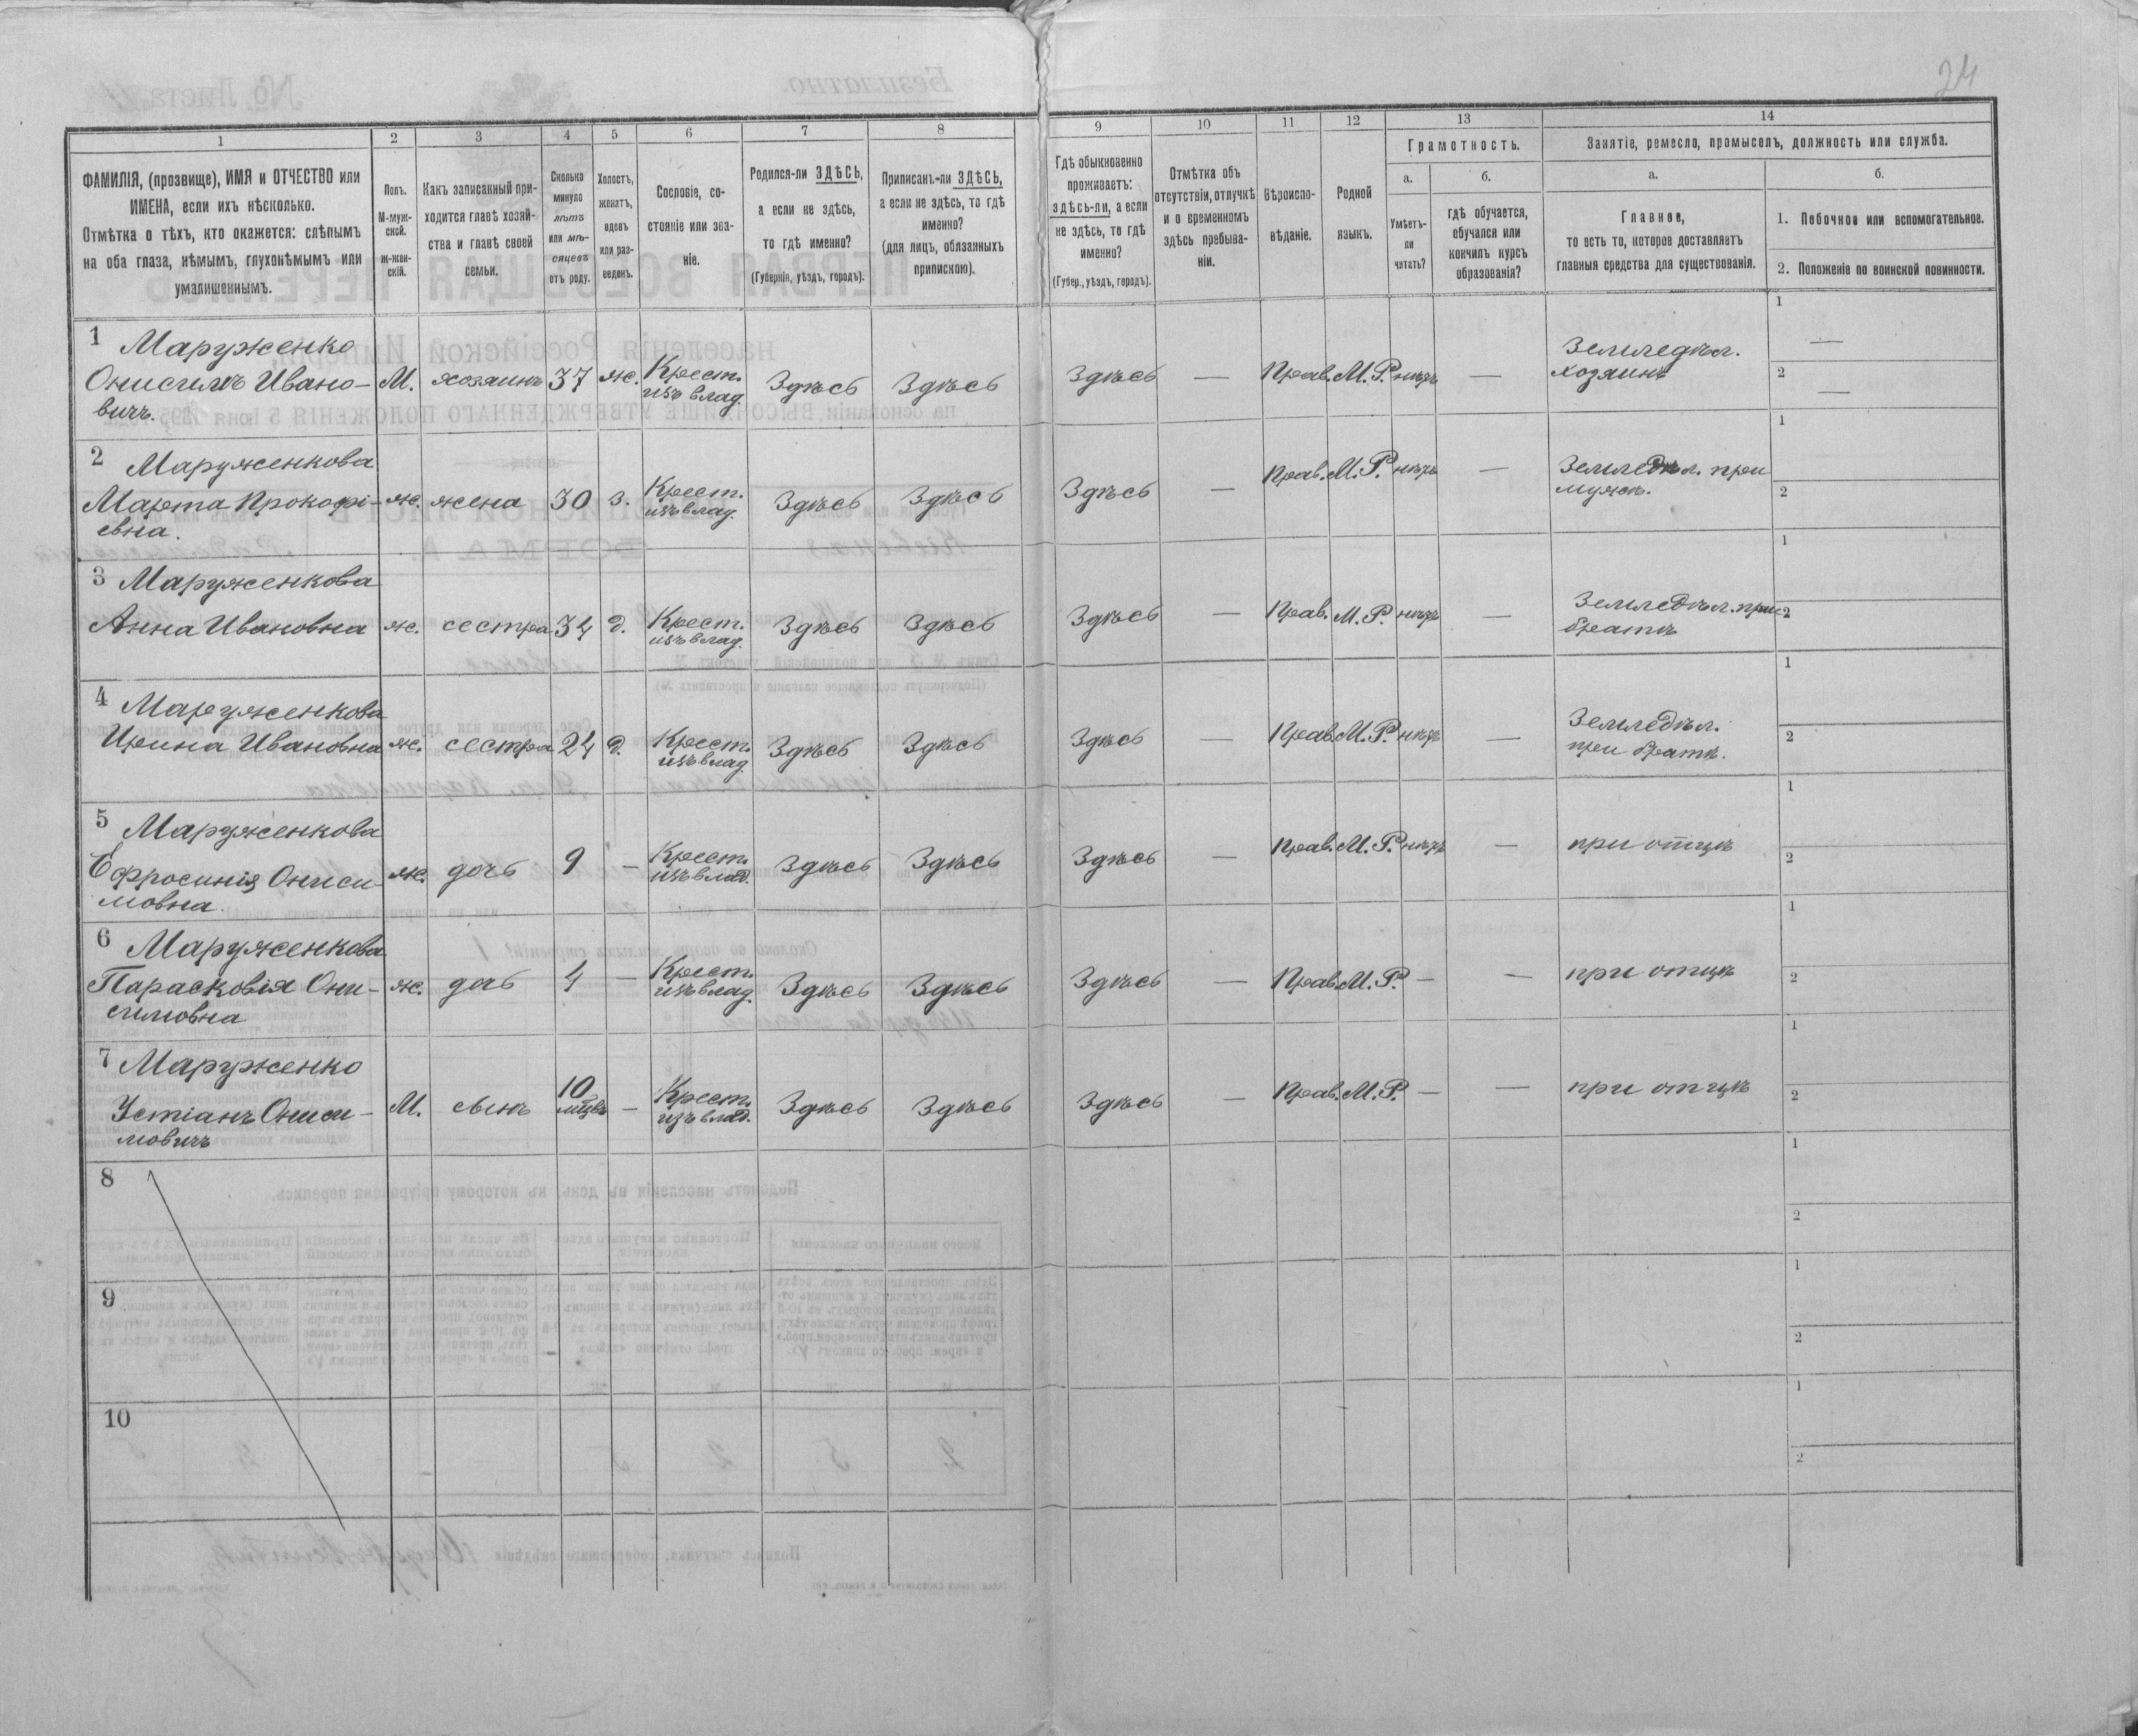 24
1 2 3 4 5 6 7 8 9 10 11 12 13 14
ФАМИЛІЯ, (прозвище), ИМЯ и ОТЧЕСТВО или
ИМЕНА, если ихъ нѣсколько.
Отмѣтка о тѣхъ, кто окажется: слѣпымъ
на оба глаза, нѣмымъ, глухонѣмымъ или
умалишеннымъ.
Полъ.
М-муж-
ской.
Ж-жен-
скій.
Какъ записанный при-
ходится главѣ хозяй-
ства и главѣ своей
семьи.
Сколько
минуло
лѣтъ
или мѣ-
сяцевъ
отъ роду.
Холостъ,
женатъ,
вдовъ
или раз-
веденъ.
Сословіе, со-
стояніе или зва-
ніе.
Родился-ли ЗДѢСЬ,
а если не здѣсь,
то гдѣ именно?
(Губернія, уѣздъ, городъ).
Приписанъ-ли ЗДѢСЬ,
а если не здѣсь, то гдѣ
именно?
(для лицъ, обязанныхъ
припискою).
Гдѣ обыкновенно
проживаетъ:
здѣсь-ли, а если
не здѣсь, то гдѣ
именно?
(Губер., уѣздъ, городъ).
Отмѣтка объ
отсутствіи, отлучкѣ
и о временномъ
здѣсь пребыва-
ніи.
Вѣроиспо-
вѣданіе.
Родной
языкъ.
Грамотность.
а.
Умѣетъ-
ли
читать?
б.
гдѣ обучается,
обучался или
кончилъ курсъ
образованія?
Занятіе, ремесло, промыселъ, должность или служба.
а.
Главное,
то есть то, которое доставляетъ
главныя средства для существованія.
б.
1. Побочное или вспомогательное.
2. Положеніе по воинской повинности.
1 Маруженко
Онисимъ Ивано-
вичъ.
М. хозяинъ 37 ж. Крест.
изъ влад. Здѣсь Здѣсь Здѣсь — Прав. М.Р. нѣтъ — Земледѣл.
хозяинъ
1 —
2 —
2 Маруженкова
Марта Прокофі-
евна.
ж. жена 30 з. Крест.
изъ влад. Здѣсь Здѣсь Здѣсь — Прав. М.Р. нѣтъ — Земледѣл. при
мужѣ.
1
2
3 Маруженкова
Анна Ивановна ж. сестра 34 д. Крест.
изъ влад. Здѣсь Здѣсь Здѣсь — Прав. М.Р. нѣтъ — Земледѣл. при
братѣ
1
2
4 Маруженкова
Ирина Ивановна ж. сестра 24 д. Крест.
изъ влад. Здѣсь Здѣсь Здѣсь — Прав. М.Р. нѣтъ — Земледѣл.
при братѣ.
1
2
5 Маруженкова
Ефросинія Ониси-
мовна.
ж. дочь 9 — Крест.
изъ влад. Здѣсь Здѣсь Здѣсь — Прав. М.Р. нѣтъ — при отцѣ
1
2
6 Маруженкова
Парасковія Они-
симовна
ж. дочь 4 — Крест.
изъ влад. Здѣсь Здѣсь Здѣсь — Прав. М.Р. — — при отцѣ
1
2
7 Маруженко
Устіанъ Ониси-
мовичъ
М. сынъ 10
мцвъ — Крест.
изъ влад. Здѣсь Здѣсь Здѣсь — Прав. М.Р. — — при отцѣ
1
2
8
1
2
9
1
2
10
1
2